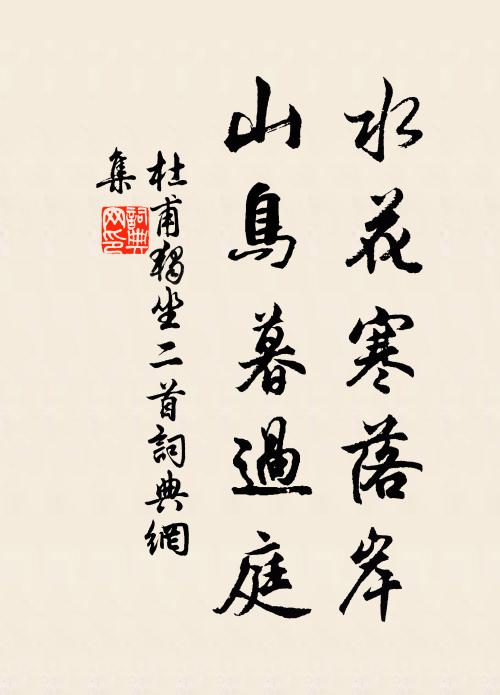 水花寒落岸
山鳥暮過庭
杜甫獨坐二首詞典網
集
詞典
网印